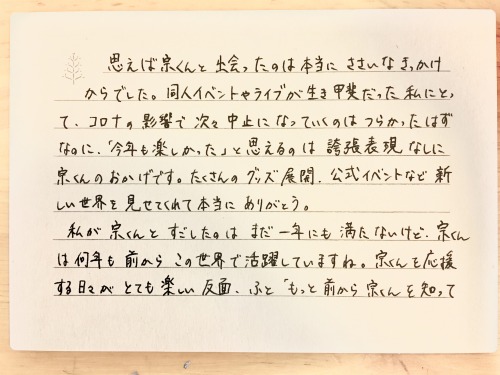 思えば宗くんと出会ったのは本当にささいなきっかけ
からでした。同人イベントやライブが生き甲斐だった私にとっ
て、コロナの影響で次々中止になっていくのはつらかったはず
なのに、「今年も楽しかった」と思えるのは誇張表現なしに
宗くんのおかげです。たくさんのグッズ展開、公式イベントなど新
しい世界を見せてくれて本当にありがとう。
私が宗くんとすごしたのはまだ一年にも満たないけど、宗くん
は何年も前からこの世界で活躍していますね。宗くんを応援
する日々がとても楽しい反面、ふと「もっと前から宗くんを知って